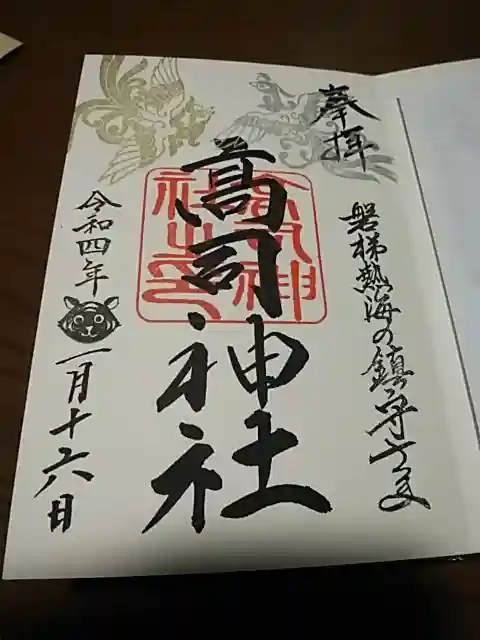 奉拝
磐梯熱海の鎮守さま
髙司神社
令和四年
一月十六日